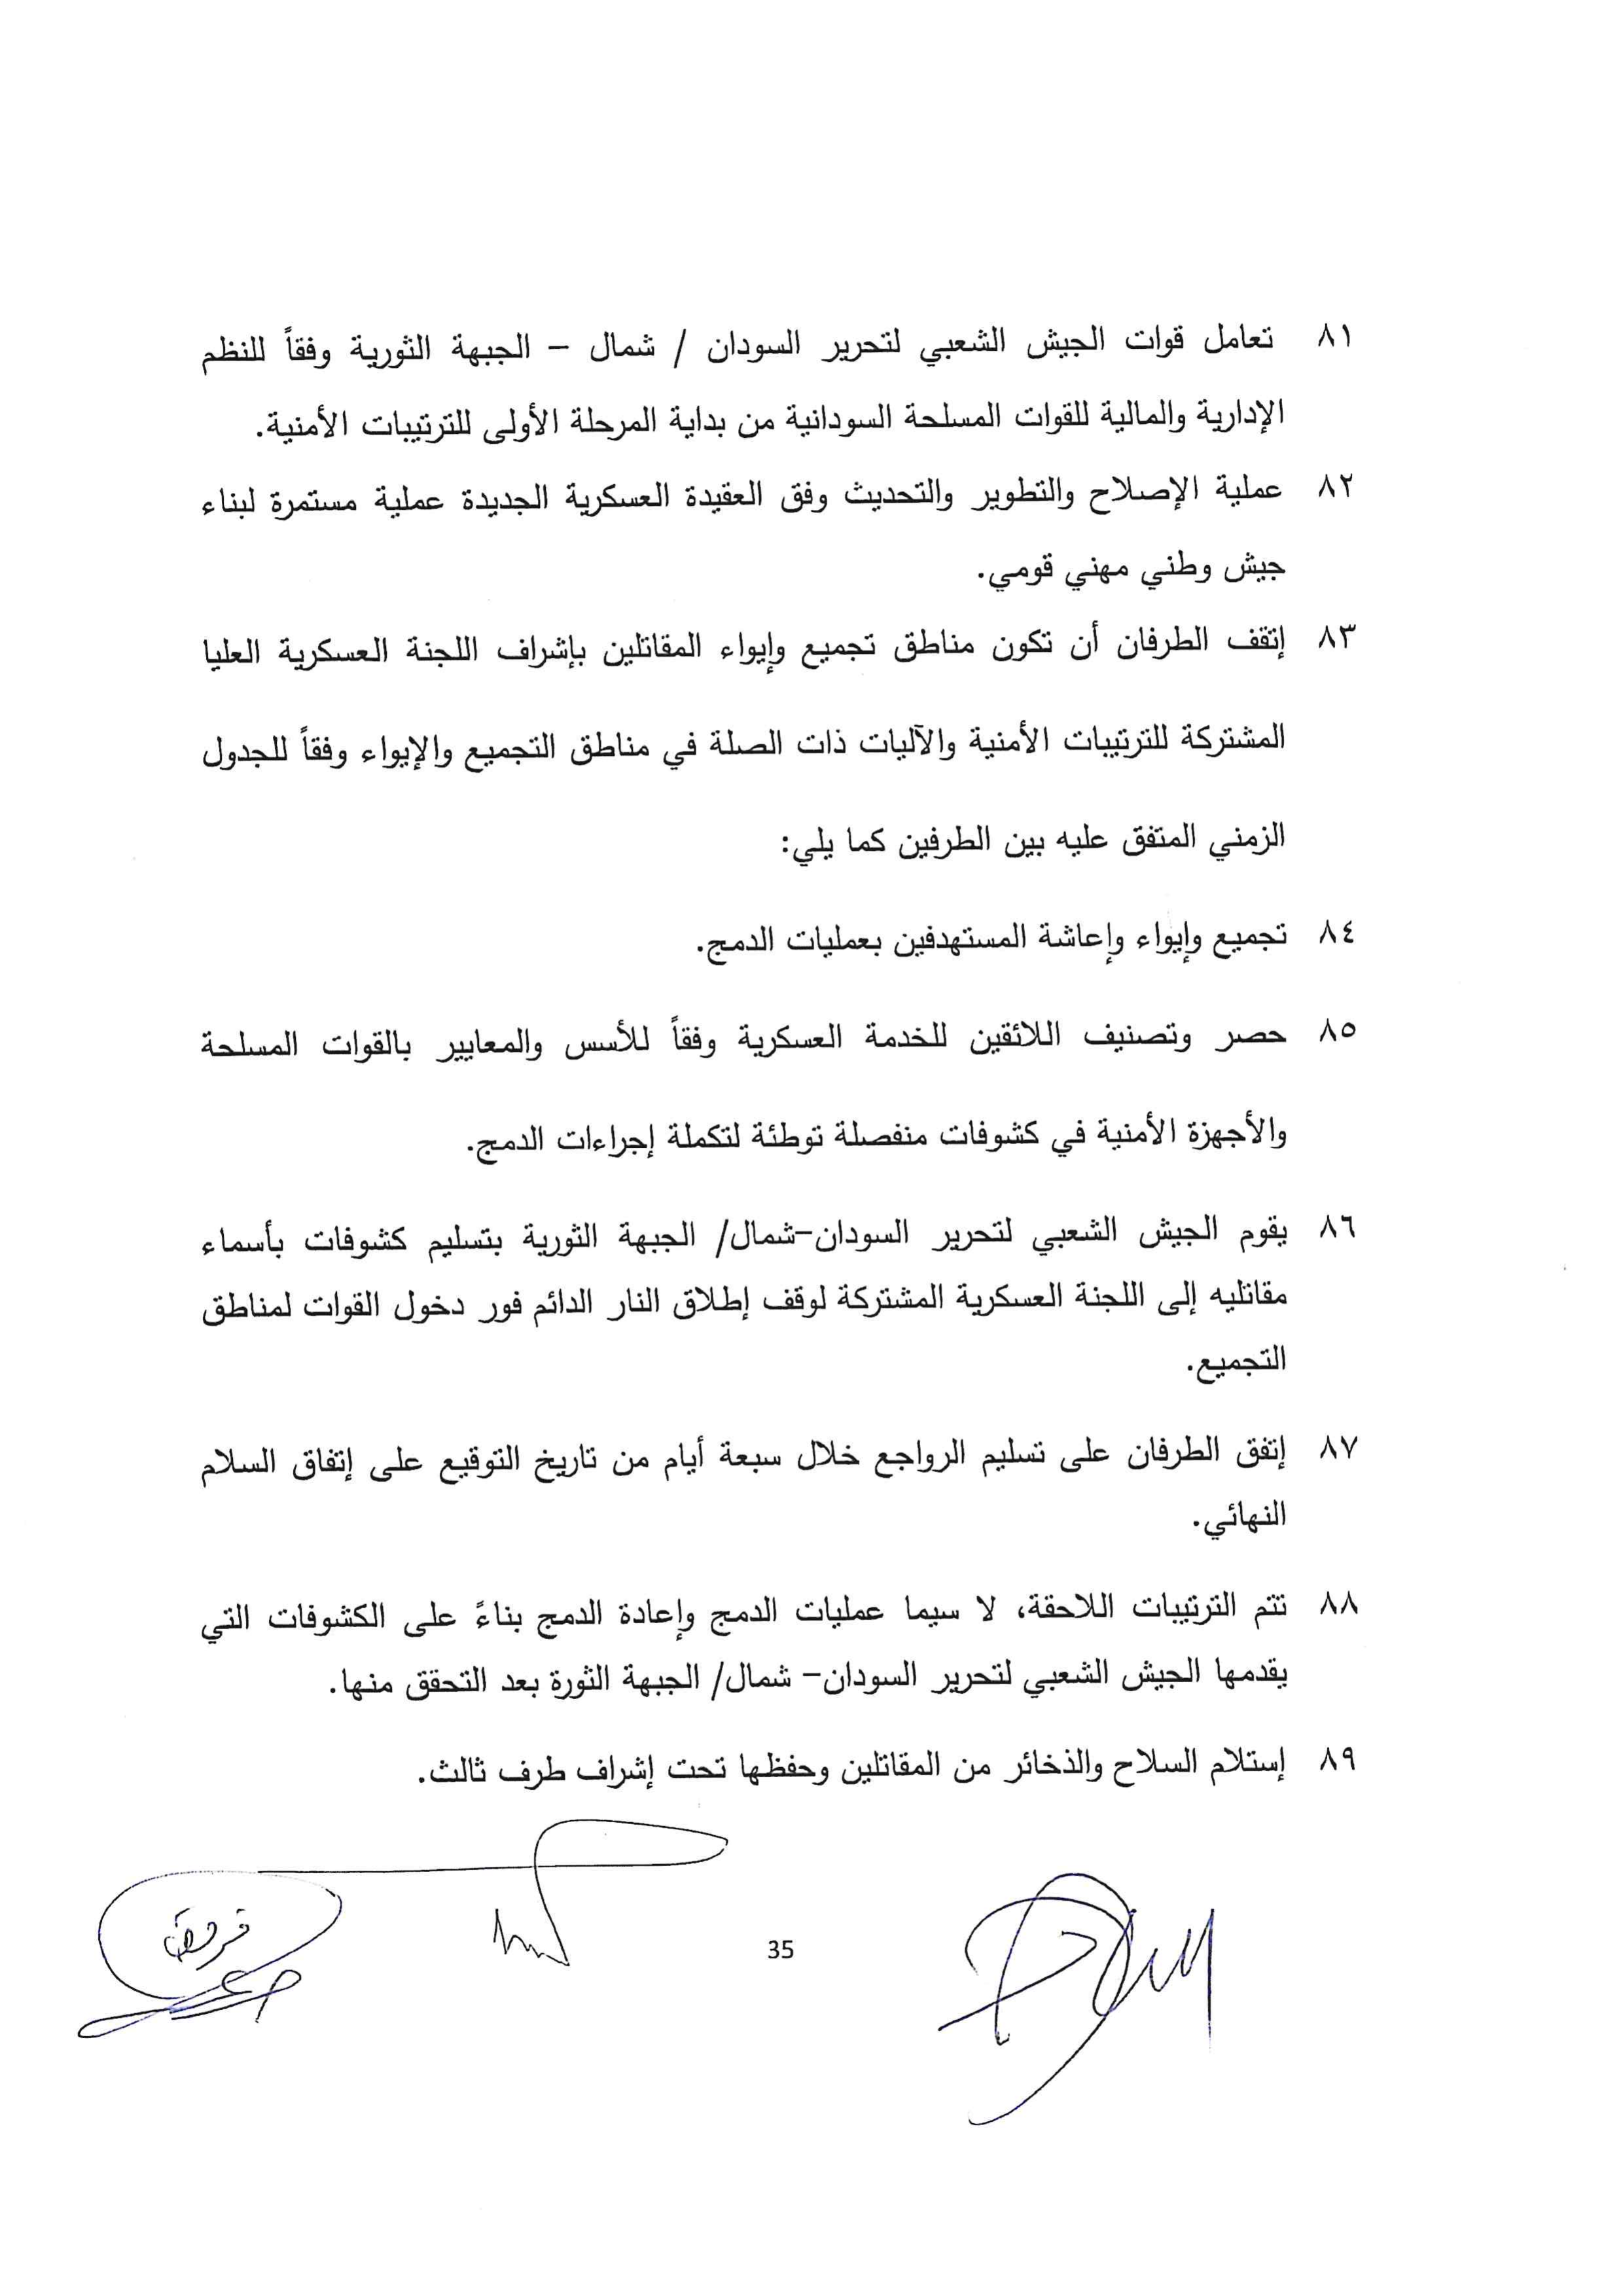 ٨١ تعامل قوات الجيش الشعبي لتحرير السودان / شمال – الجبهة الثورية وفقاً للنظم
الإدارية والمالية للقوات المسلحة السودانية من بداية المرحلة الأولى للترتيبات الأمنية.
٨٢ عملية الإصلاح والتطوير والتحديث وفق العقيدة العسكرية الجديدة عملية مستمرة لبناء
جيش وطني مهني قومي.
٨٣ إتقف الطرفان أن تكون مناطق تجميع وإيواء المقاتلين بإشراف اللجنة العسكرية العليا
المشتركة للترتيبات الأمنية والآليات ذات الصلة في مناطق التجميع والإيواء وفقاً للجدول
الزمني المتفق عليه بين الطرفين كما يلي:
٨٤ تجميع وإيواء وإعاشة المستهدفين بعمليات الدمج.
٨٥ حصر وتصنيف اللائقين للخدمة العسكرية وفقاً للأسس والمعايير بالقوات المسلحة
والأجهزة الأمنية في كشوفات منفصلة توطئة لتكملة إجراءات الدمج.
٨٦ يقوم الجيش الشعبي لتحرير السودان–شمال/ الجبهة الثورية بتسليم كشوفات بأسماء
مقاتليه إلى اللجنة العسكرية المشتركة لوقف إطلاق النار الدائم فور دخول القوات لمناطق
التجميع.
٨٧ إتفق الطرفان على تسليم الرواجع خلال سبعة أيام من تاريخ التوقيع على إتفاق السلام
النهائي.
٨٨ تتم الترتيبات اللاحقة، لا سيما عمليات الدمج وإعادة الدمج بناءً على الكشوفات التي
يقدمها الجيش الشعبي لتحرير السودان– شمال/ الجبهة الثورة بعد التحقق منها.
٨٩ إستلام السلاح والذخائر من المقاتلين وحفظها تحت إشراف طرف ثالث.
35